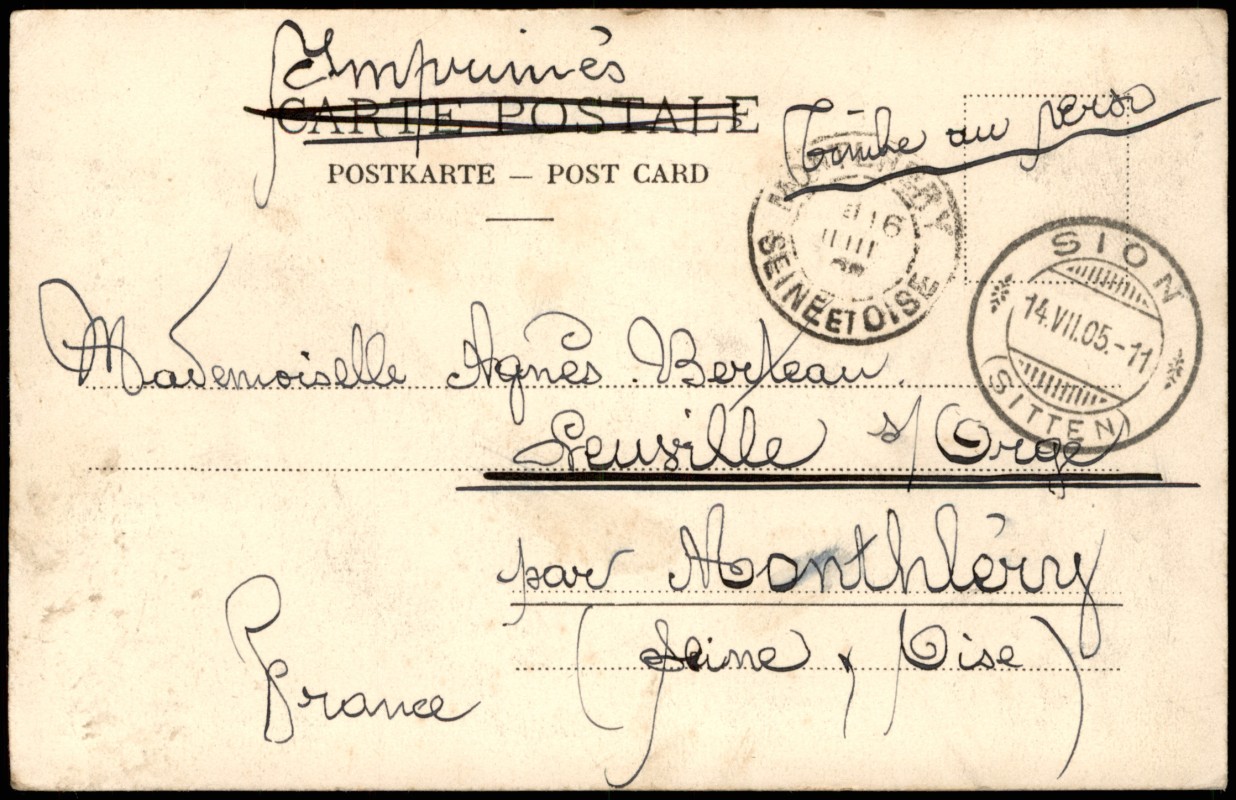 Imprimés
CARTE POSTALE
POSTKARTE — POST CARD
Timbre au verso
SEINE ET OISE
16
SION
14.VII.05.-11
(SITTEN)
Mademoiselle Agnès Berteau.
Leuville s/ Orge
par Monthléry
(Seine & Oise)
France